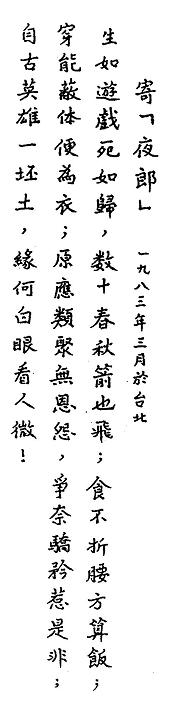 寄「夜郎」
一九八三年三月於台北
生如遊戲死如歸，数十春秋箭也飛；食不折腰方算飯；
穿能蔽体便為衣；原應類聚無恩怨，爭奈驕矜惹是非；
自古英雄一坯土，緣何白眼看人微！